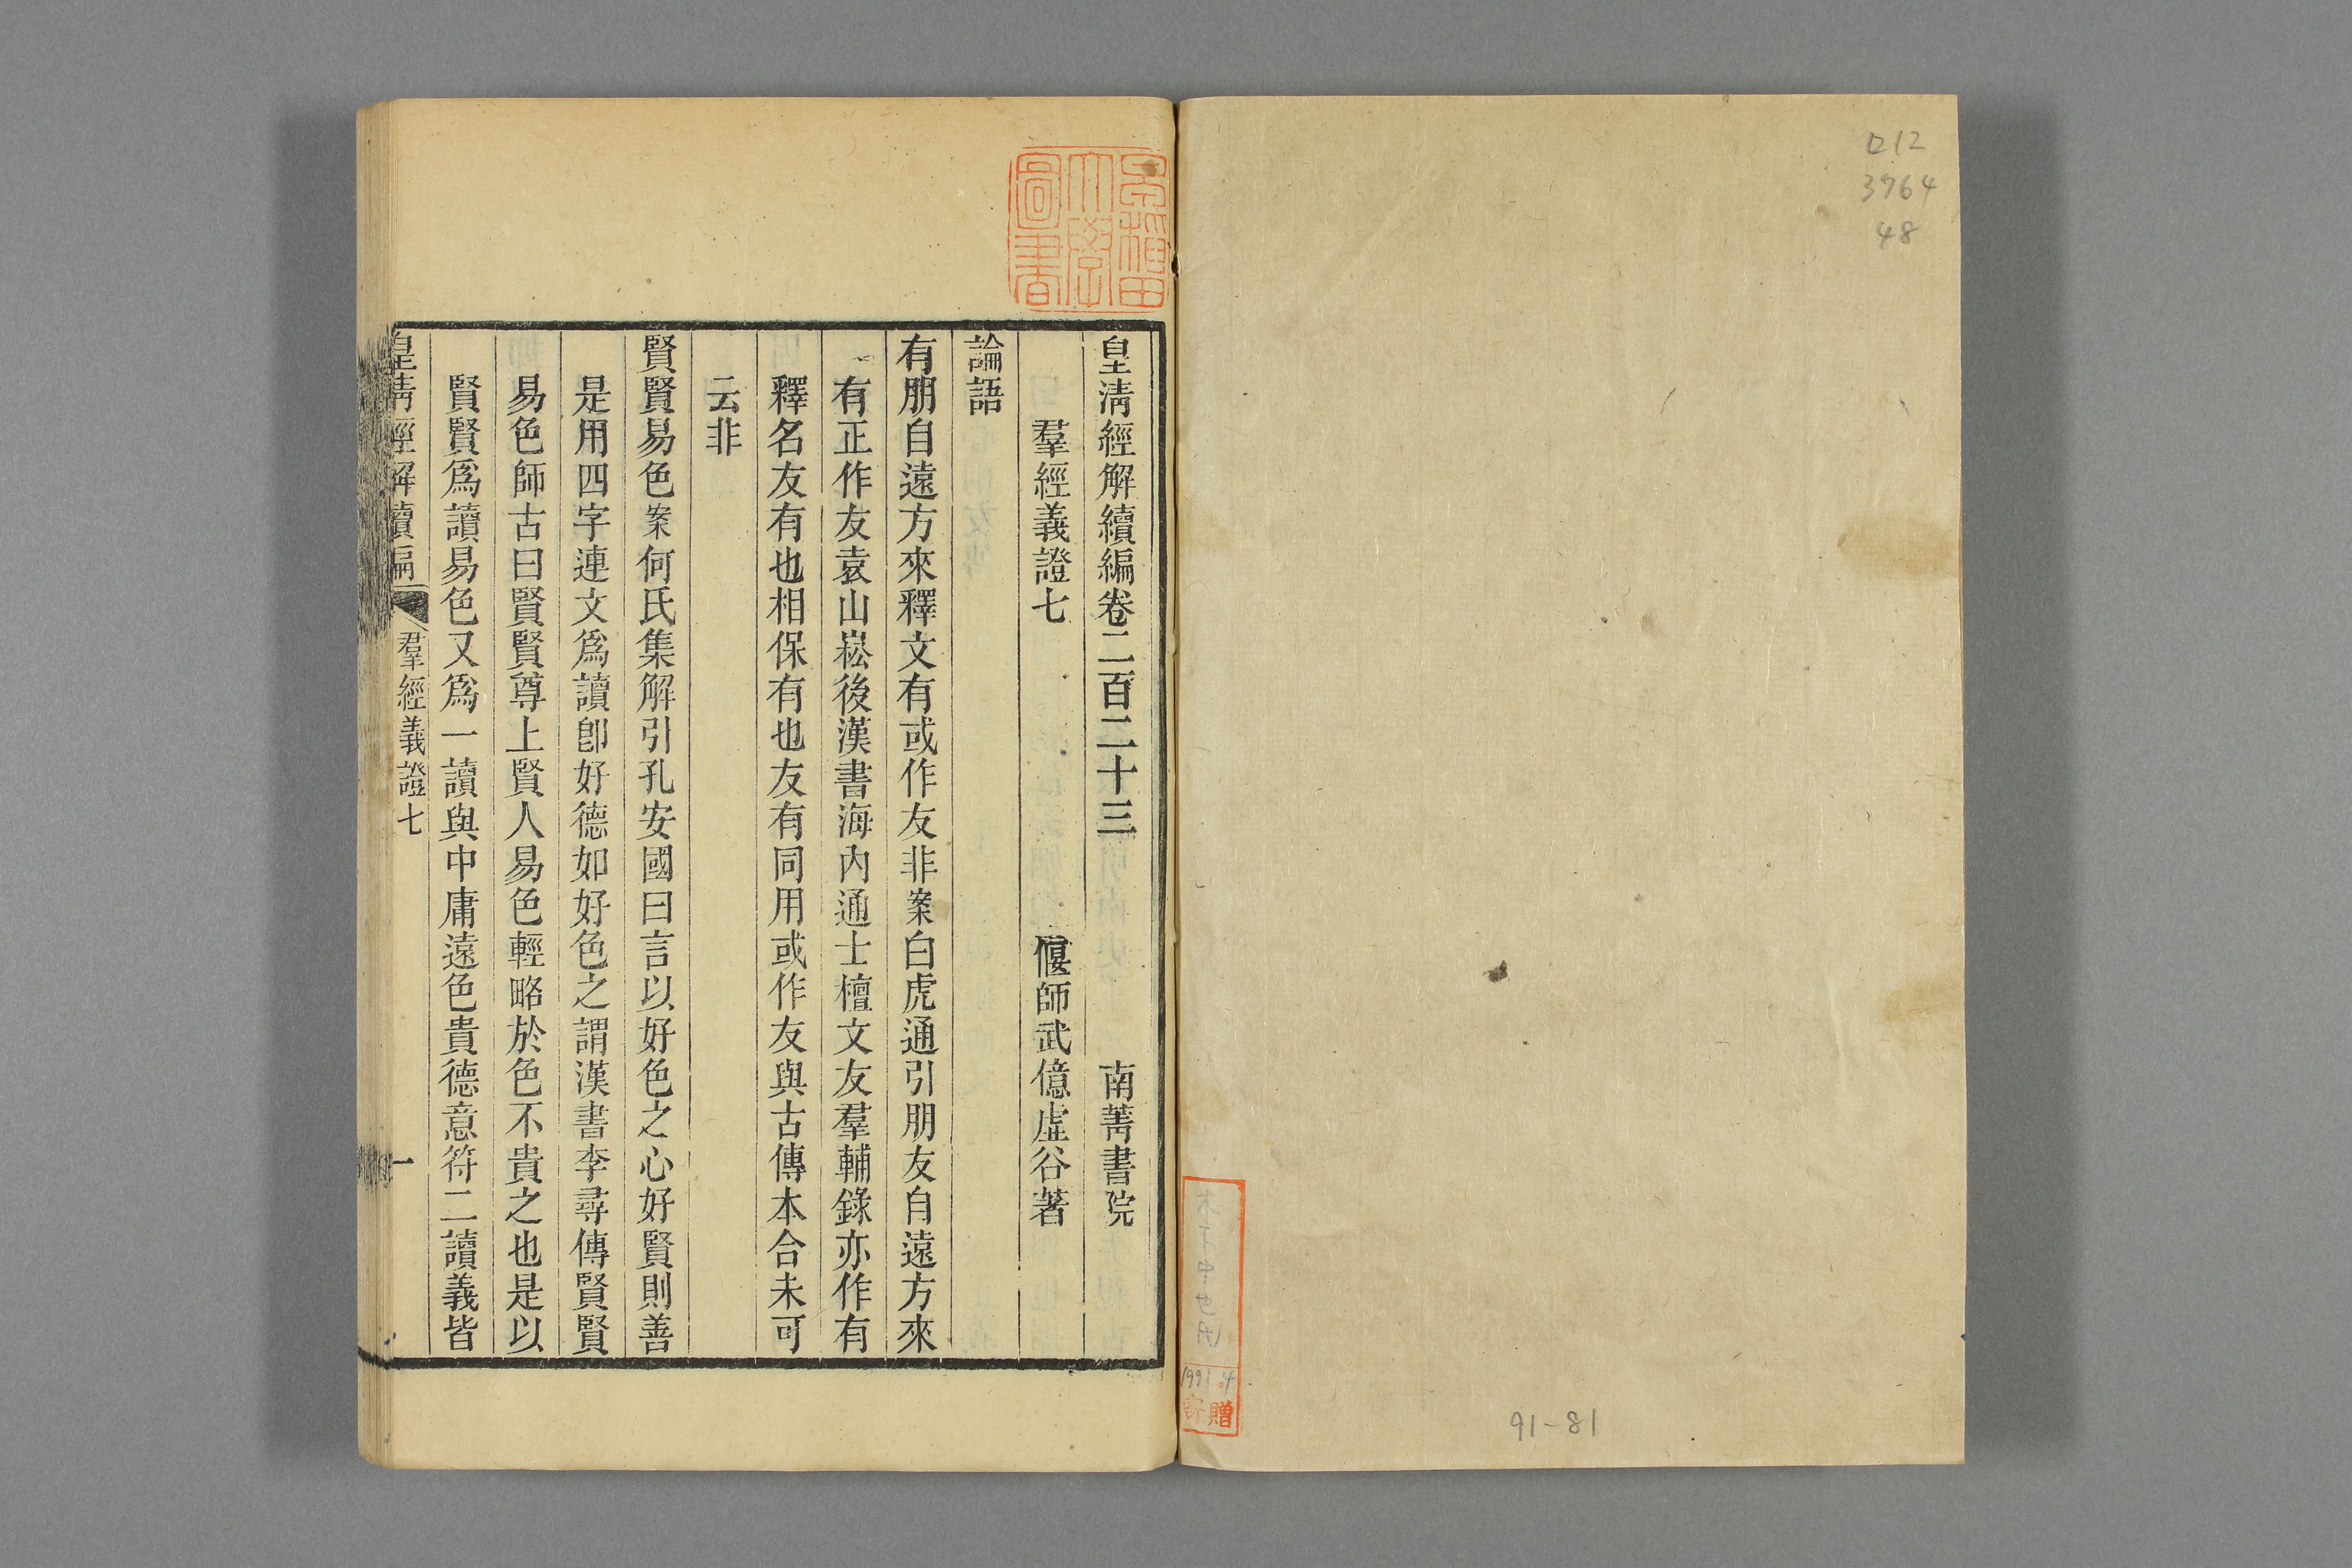 ロ12
3764
48
91-81
1991.4
寄贈
早稲田大學圖書
皇清經解續編卷二百二十三　南菁書院
羣經義證七　偃師武億虛谷著
論語
有朋自遠方來釋文有或作友非案白虎通引朋友自遠方來
有正作友袁山崧後漢書海內通士檀文友羣輔錄亦作有
釋名友有也相保有也友有同用或作友與古傳本合未可
云非
賢賢易色案何氏集解引孔安國曰言以好色之心好賢則善
是用四字連文爲讀卽好德如好色之謂漢書李尋傳賢賢
易色師古曰賢賢尊上賢人易色輕略於色不貴之也是以
賢賢爲讀易色又爲一讀與中庸遠色貴德意符二讀義皆
皇清經解續編　羣經義證七　一